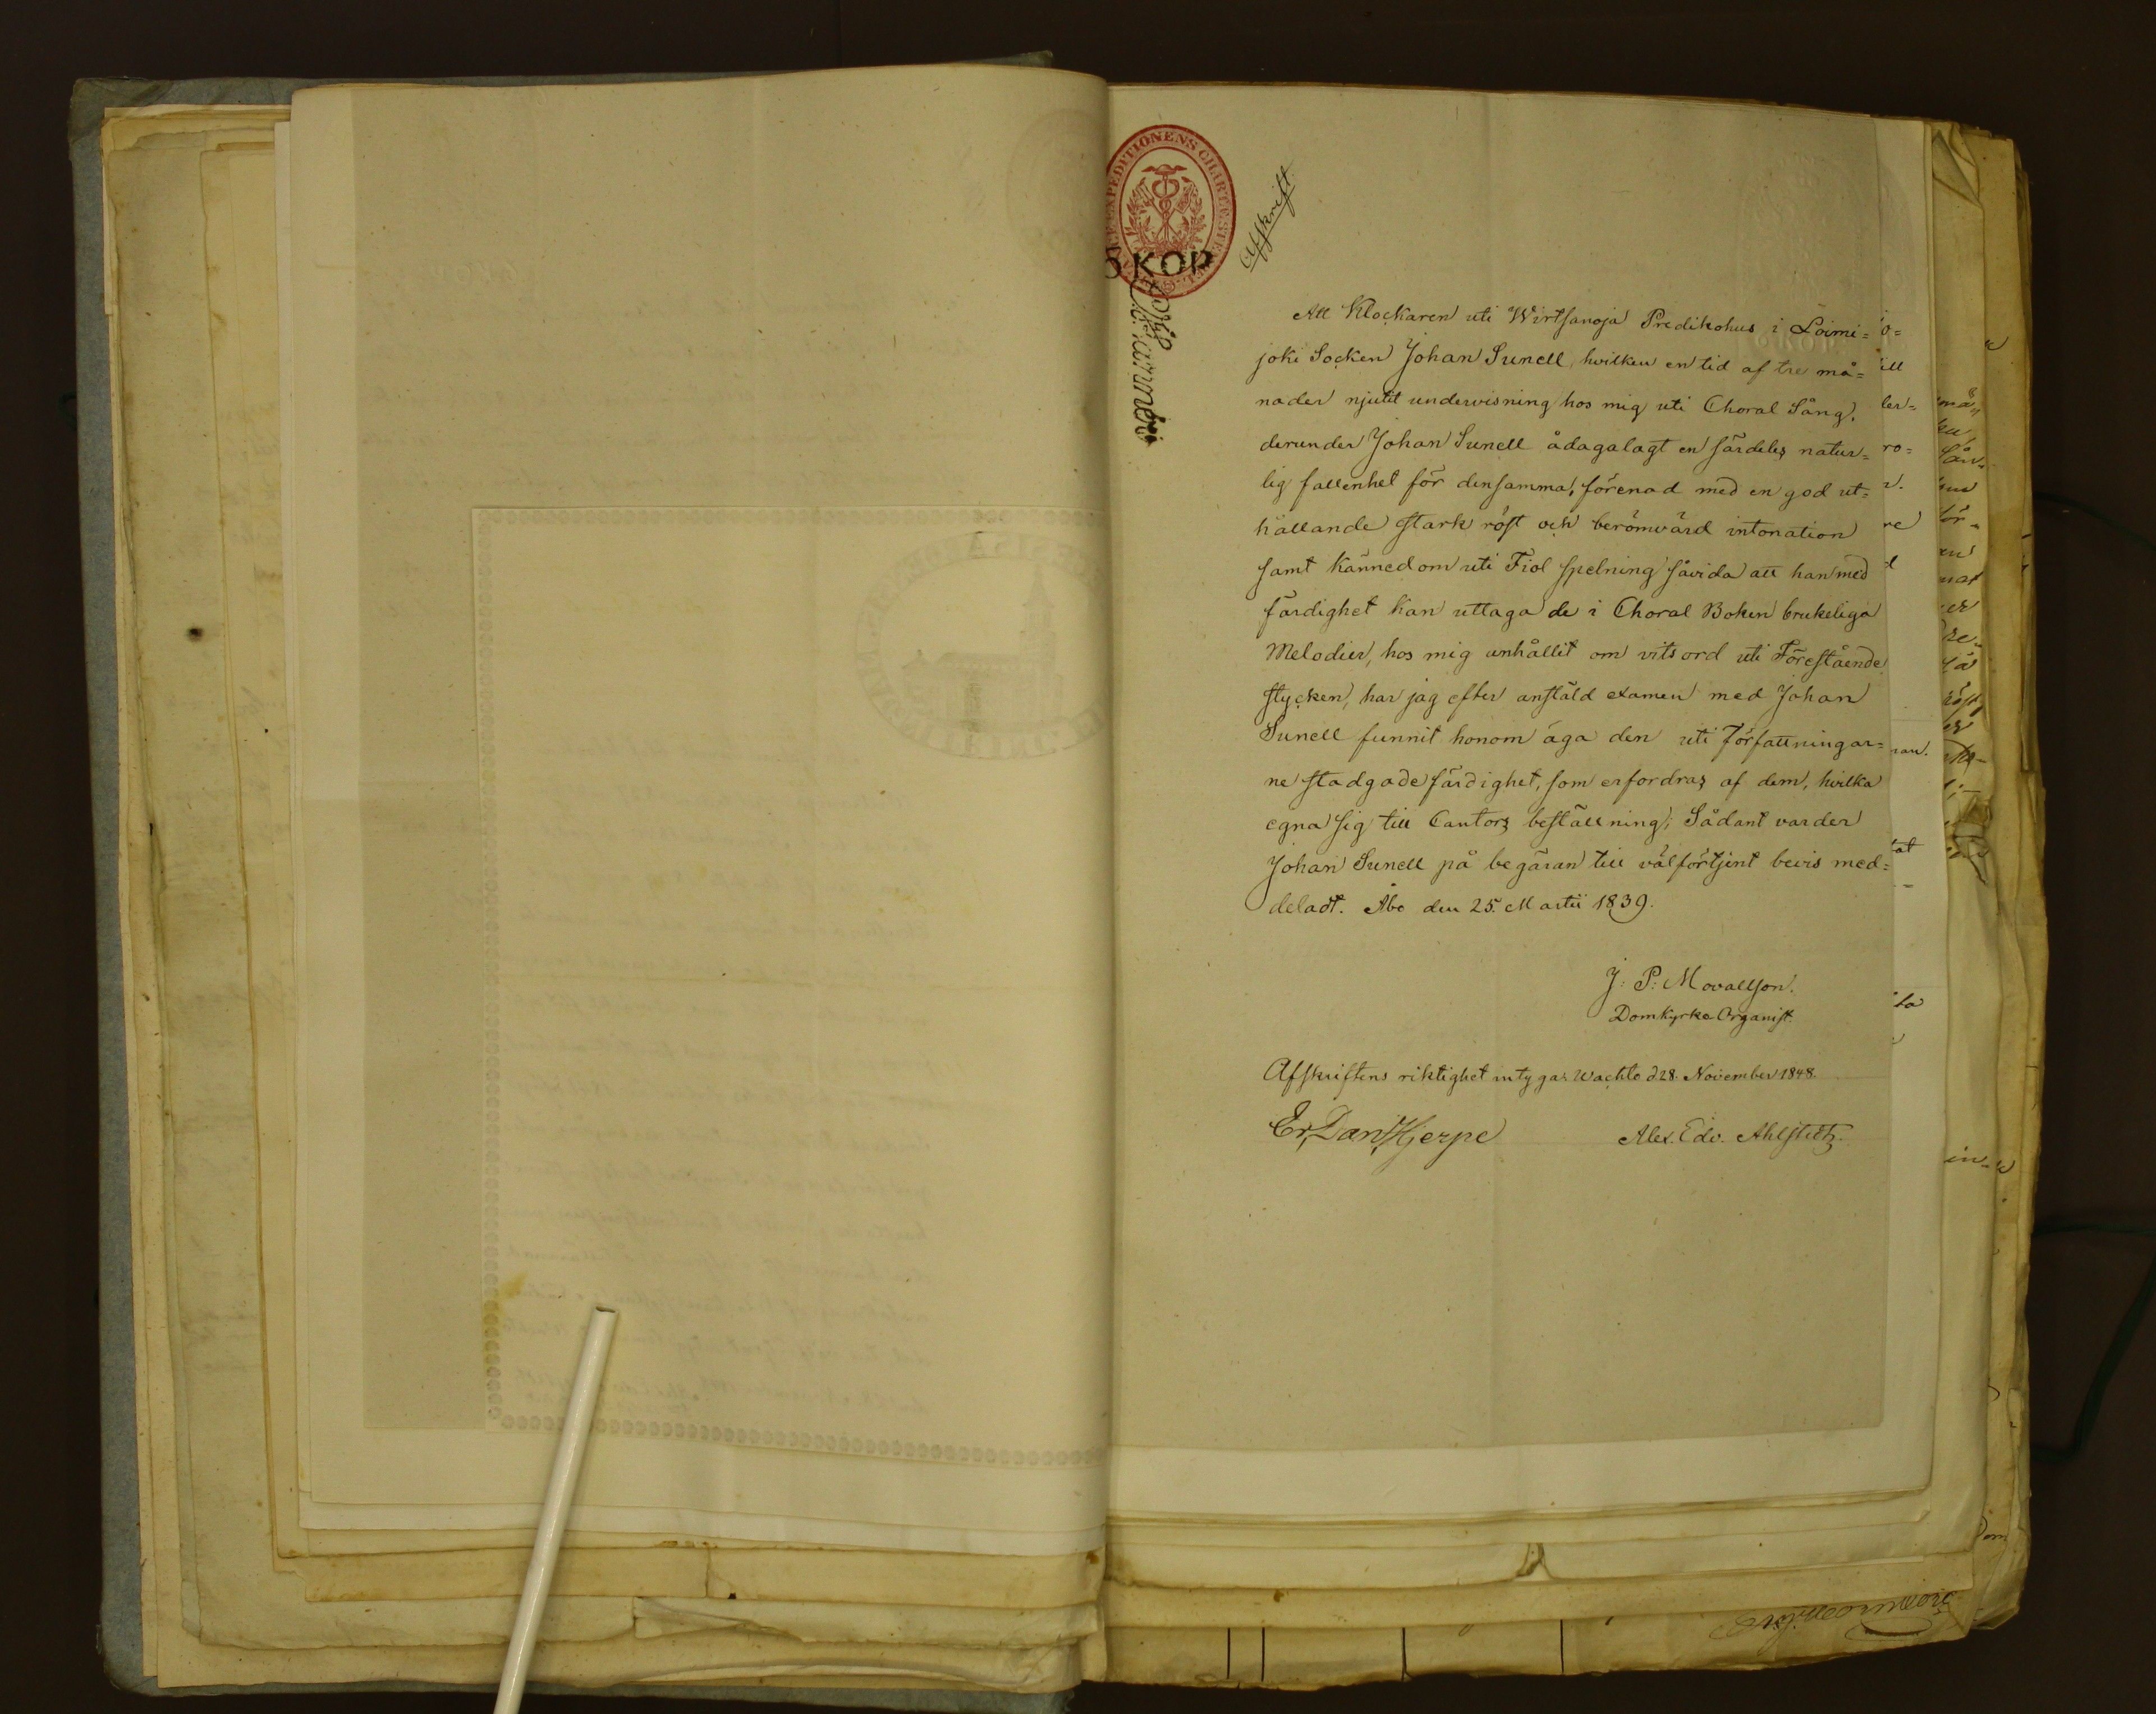 EXPEDITIONENS CHARTÆ STEMPEL
5 KOP
Afskrift
Att Klockaren uti Wirtsanoja Predikohus i Loimi=
joki Socken Johan Sunell, hvilken en tid af tre må=
nader njutit undervisning hos mig uti Choral Sång,
derunder Johan Sunell ådagalagt en särdeles natur=
lig fallenhet för densamma, förenad med en god ut=
hållande stark röst och berömvärd intonation
samt kännedom uti Fiol spelning såvida att han med
färdighet kan uttaga de i Choral Boken brukeliga
Melodier, hos mig anhållit om vitsord uti Förestående
stycken, har jag efter anstäld examen med Johan
Sunell funnit honom äga den uti Författningar=
ne stadgade färdighet, som erfordras af dem, hvilka
egna sig till Cantors beställning; Sådant varder
Johan Sunell på begäran till välförtjent bevis med=
deladt. Åbo den 25. Martii 1839.
J: P: Movallson.
DomKyrko Organist.
Afskriftens riktighet intygar Wachto d 28. November 1848.
Er, Dan, Hjerpe
Alex. Edv. Ahlstedt.